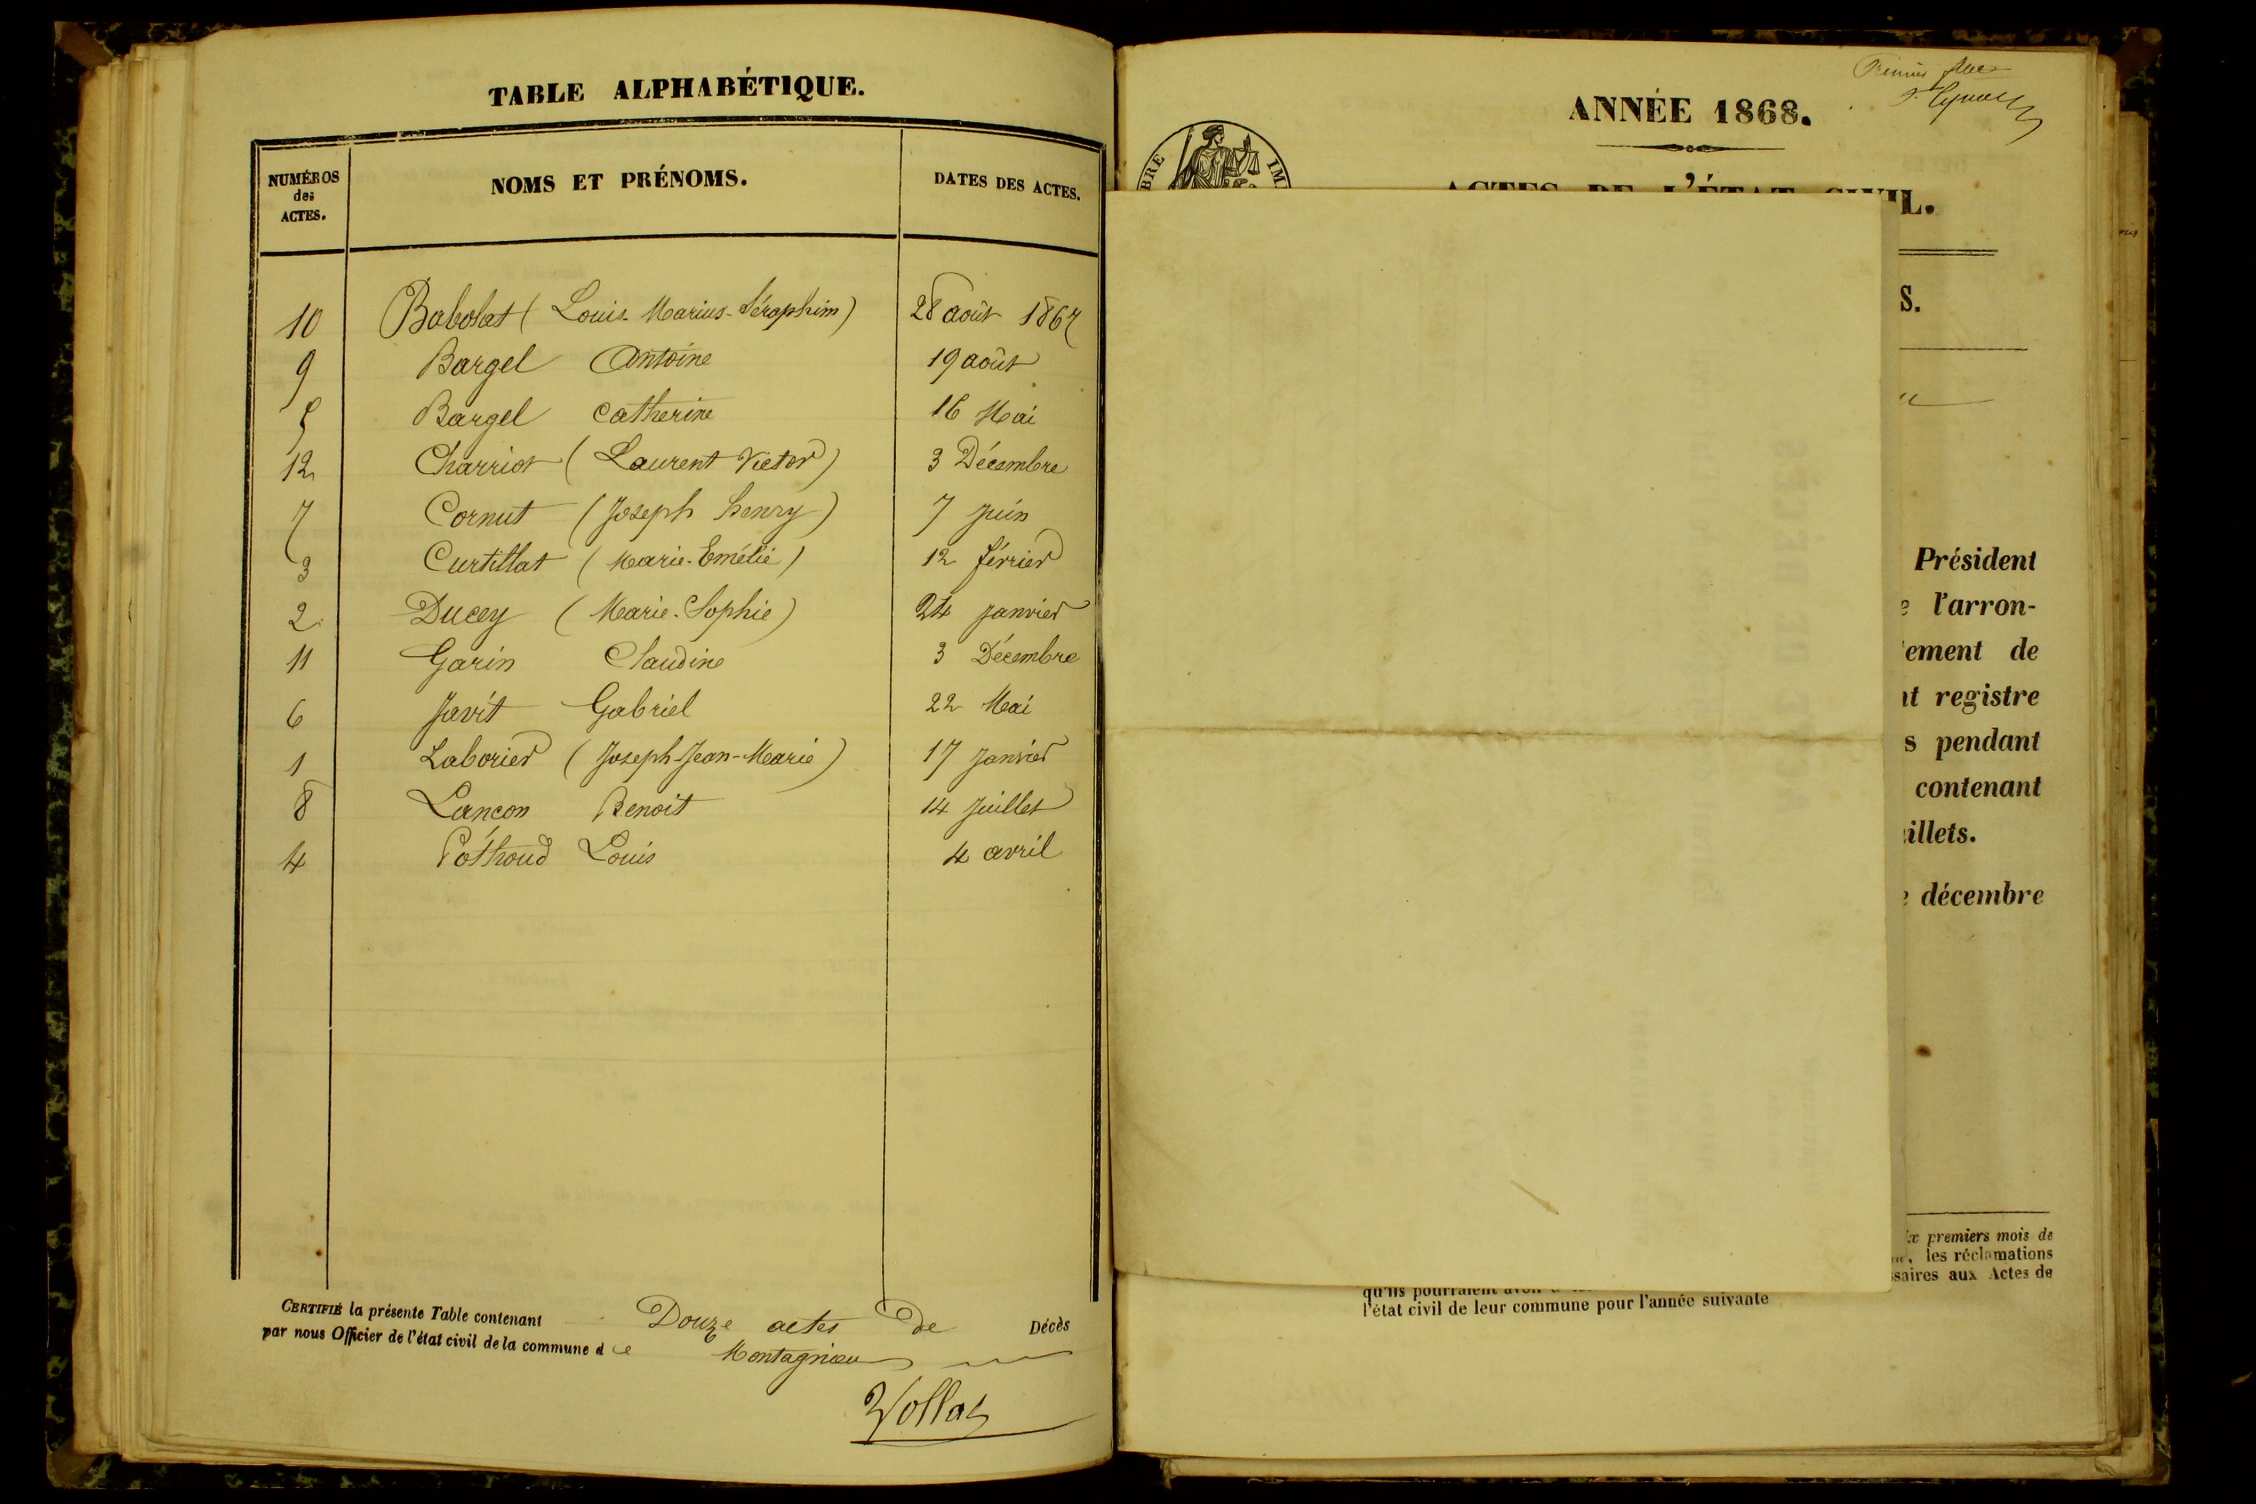 TABLE ALPHABÉTIQUE.
NUMÉROS des ACTES. NOMS ET PRÉNOMS. DATES DES ACTES.
10 Babolat (Louis-Marius-Séraphim) 28 août 1867
9 Bargel Antoine 19 août
5 Bargel Catherine 16 Mai
12 Charriot (Laurent Victor) 3 Décembre
7 Cornut (Joseph henry) 7 Juin
3 Curtillat (Marie-Emélie) 12 février
2 Ducey (Marie-Sophie) 24 janvier
11 Garin Claudine 3 Décembre
6 Javit Gabriel 22 Mai
1 Laborier (Joseph-Jean-Marie) 17 Janvier
8 Lancon Benoit 14 Juillet
4 Pothoud Louis 4 avril
CERTIFIÉ la présente Table contenant Douze actes de Décès
par nous Officier de l'état civil de la commune de Montagnieu
ANNÉE 1868.
BRE IM
ACTES DE L'ÉTAT CIVIL.
S.
Président
l'arron-
ement de
nt registre
s pendant
contenant
illets.
décembre
premiers mois de
les réclamations
ssaires aux Actes de
qu'ils pourraient
l'état civil de leur commune pour l'année suivante